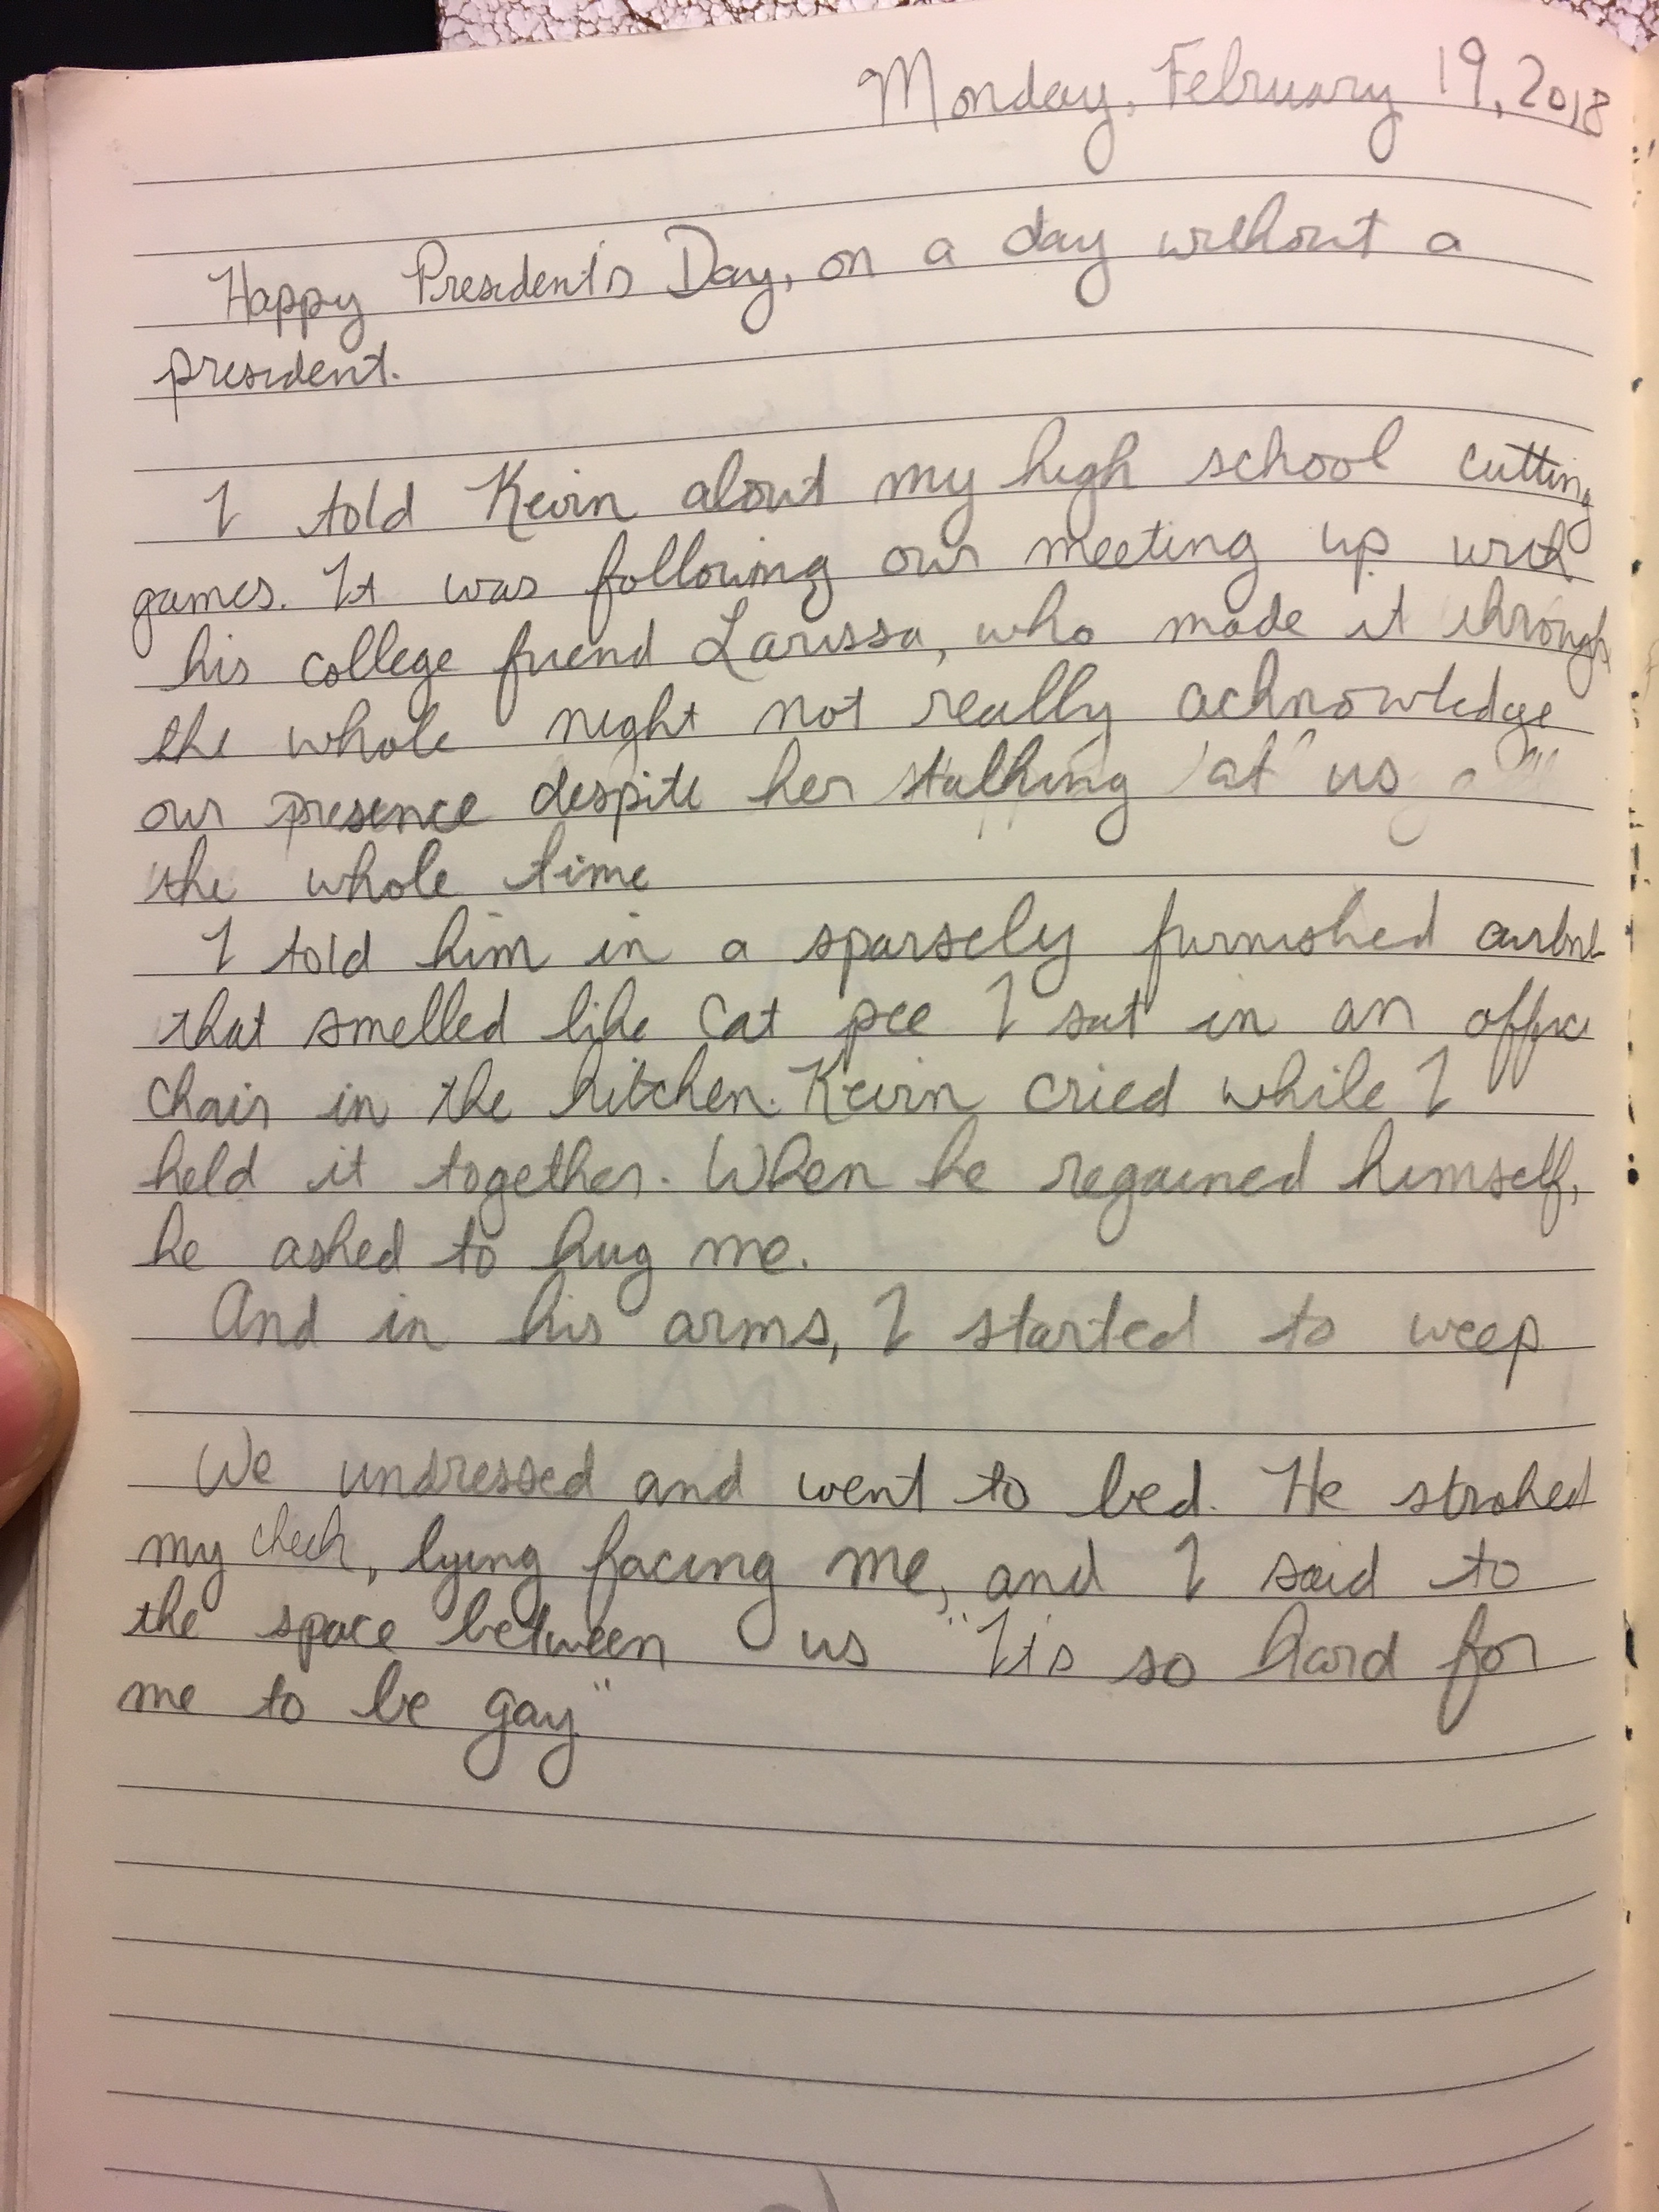 Monday, February 19, 2018
Happy President's Day, on a day without a
president.
I told Kevin about my high school cutting
games. It was following our meeting up with
his college friend Larissa, who made it through
the whole night not really acknowledge
our presence despite her talking "at" us
the whole time
I told him in a sparsely furnished airbnb
that smelled like cat pee I sat in an office
chair in the kitchen. Kevin cried while I
held it together. When he regained himself,
he asked to hug me.
And in his arms, I started to weep
We undressed and went to bed. He stroked
my cheek, lying facing me, and I said to
the space between us "It's so hard for
me to be gay"